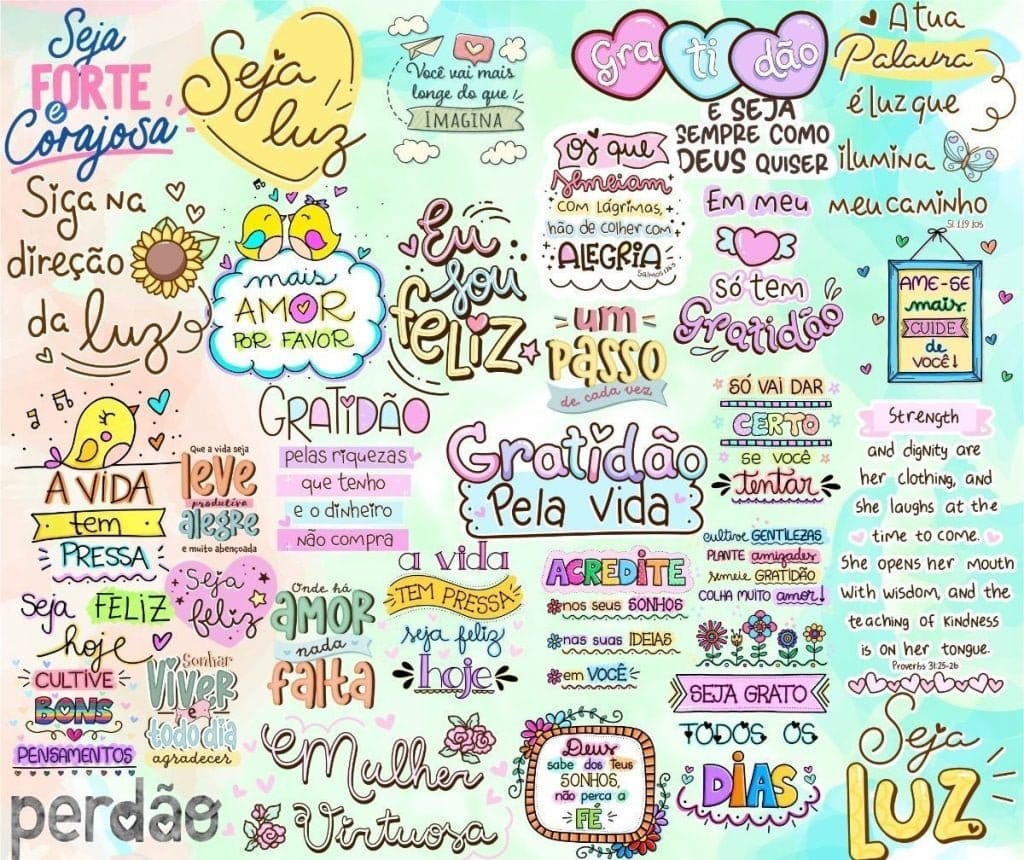 Seja
FORTE
e
Corajosa
Seja
luz
Você vai mais
longe do que
IMAGINA
Gra ti dão
E SEJA
SEMPRE COMO
DEUS QUISER
A tua
Palavra
é luz que
ilumina
meu caminho
Sl. 119.105
Siga na
direção
da luz
mais
AMOR
POR FAVOR
Eu
sou
feliz
Os que
semeiam
COM LÁGRIMAS,
hão de colher com
ALEGRIA
Salmos 126.5
Em meu
só tem
Gratidão
AME-SE
mais.
CUIDE
de
VOCÊ!
um
PASSO
de cada vez
A VIDA
tem
PRESSA
Seja FELIZ
hoje
Que a vida seja
leve
produtiva
alegre
e muito abençoada
GRATIDÃO
pelas riquezas
que tenho
e o dinheiro
não compra
Gratidão
Pela Vida
SÓ VAI DAR
CERTO
se você
tentar
Strength
and dignity are
her clothing, and
she laughs at the
time to come.
She opens her mouth
with wisdom, and the
teaching of kindness
is on her tongue.
Proverbs 31:25-26
Seja
feliz
Onde há
AMOR
nada
falta
a vida
TEM PRESSA
seja feliz
hoje
ACREDITE
nos seus SONHOS
nas suas IDEIAS
em VOCÊ
cultive GENTILEZAS
PLANTE amizades
semeie GRATIDÃO
COLHA MUITO amor!
CULTIVE
BONS
PENSAMENTOS
Sonhar
Viver
e
todo dia
agradecer
SEJA GRATO
TODOS OS
DIAS
perdão
Mulher
Virtuosa
Deus
sabe dos Teus
SONHOS,
não perca a
FÉ
Seja
LUZ